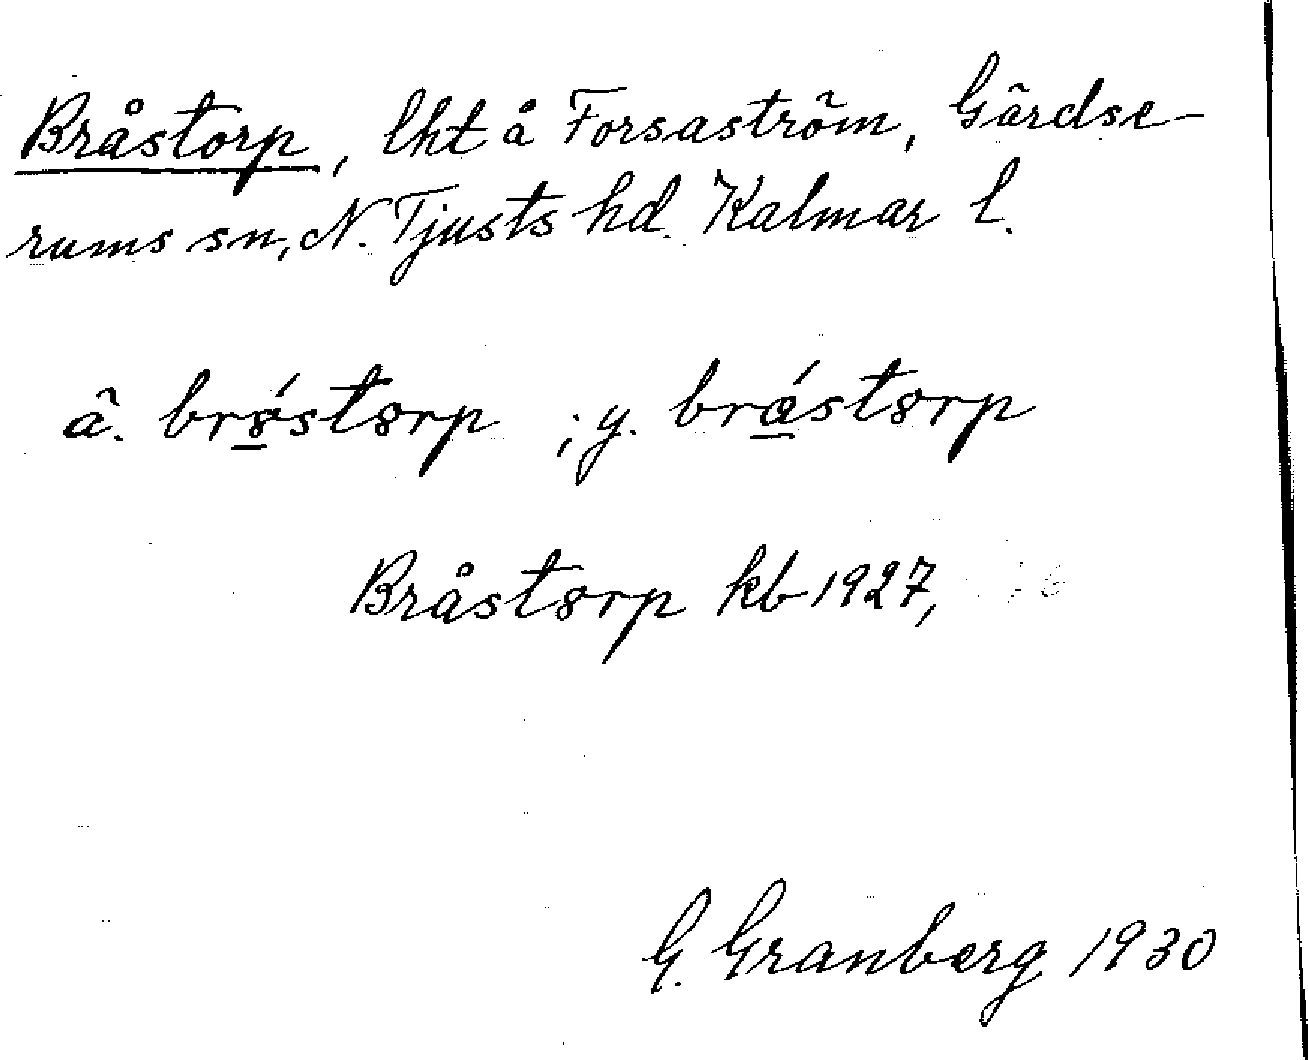 Bråstorp, lht å Forsaström, Gärdse-
rums sn, N. Tjusts hd. Kalmar l.
ä. br8́storp ; y. brǻstorp
Bråstorp kb 1927,
G. Granberg 1930